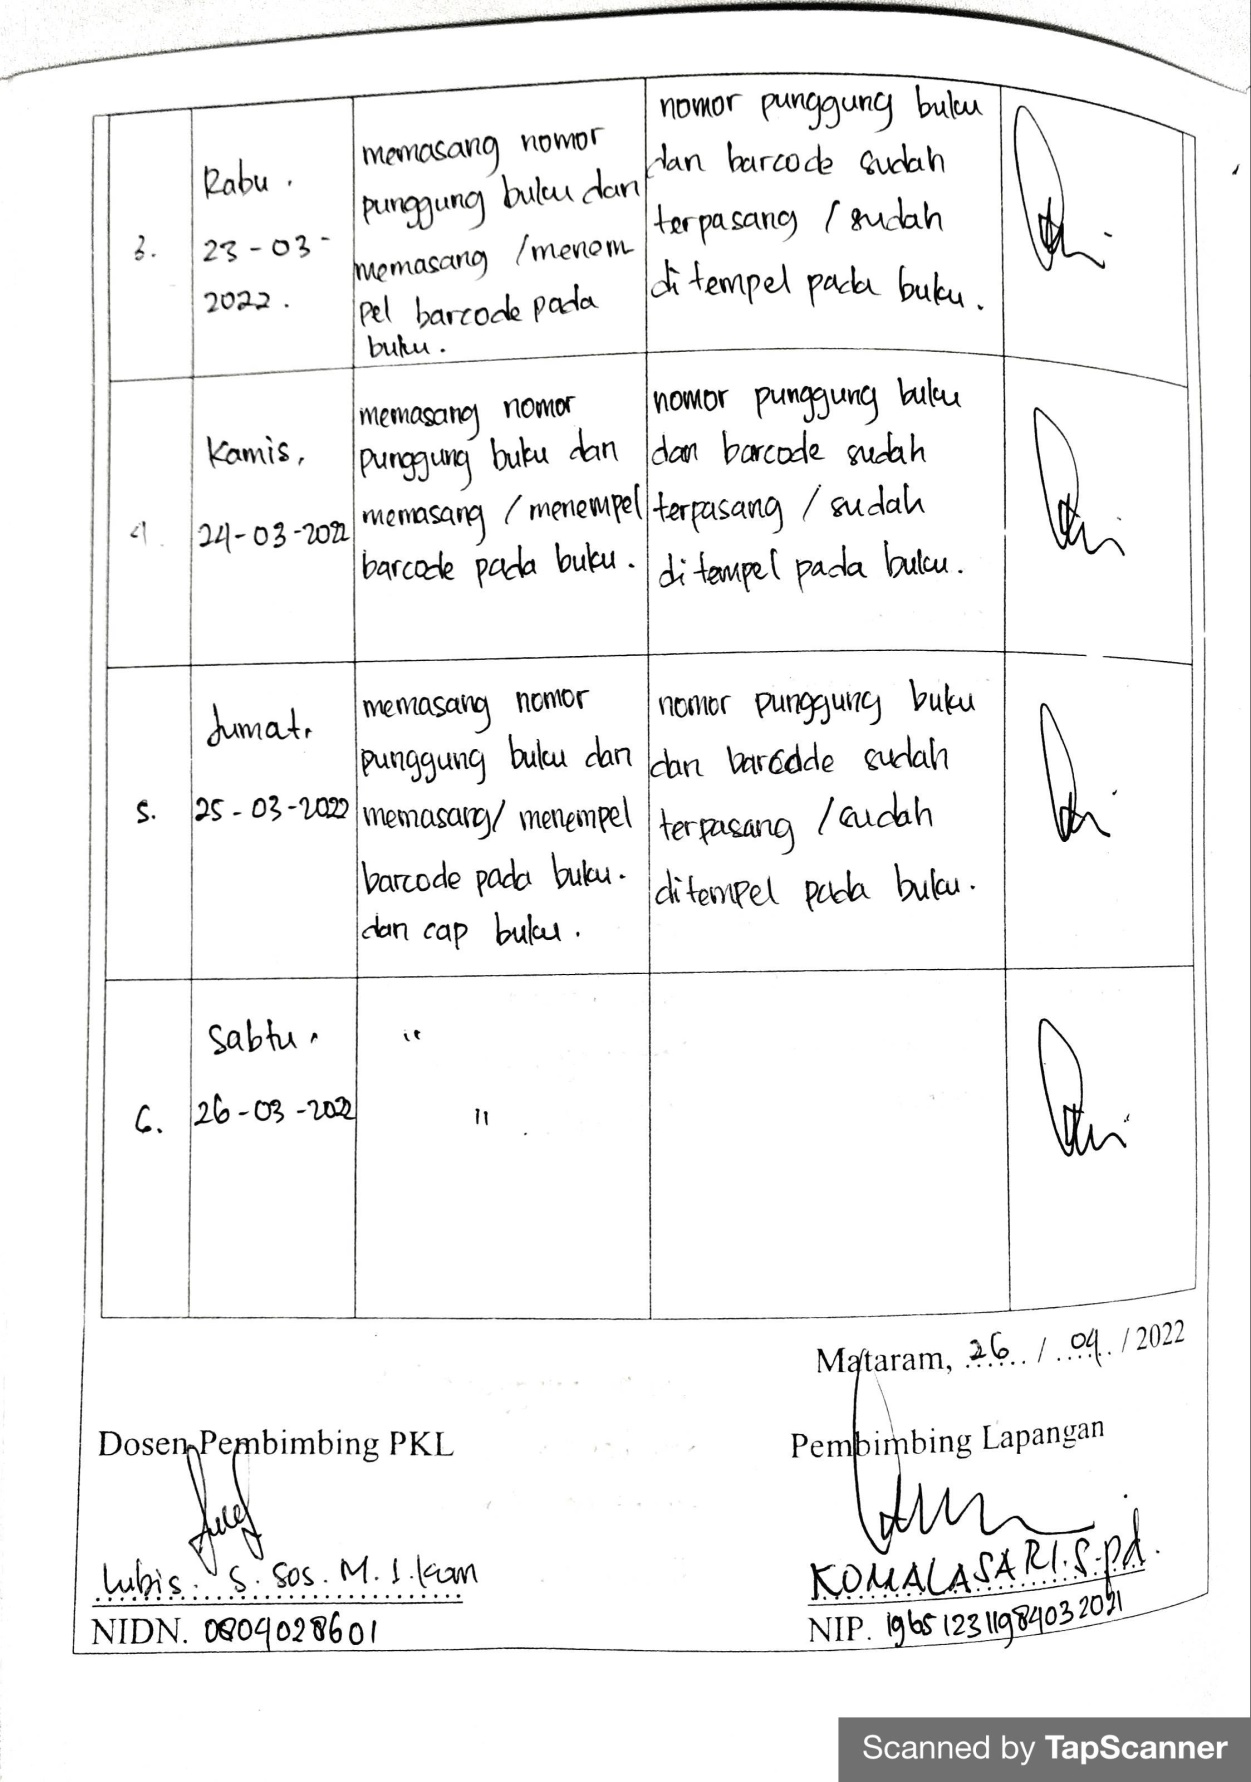 3.
Rabu.
23-03-
2022.
memasang nomor
punggung buku dan
memasang /menem
pel barcode pada
buku.
nomor punggung buku
dan barcode sudah
terpasang / sudah
ditempel pada buku.
4.
Kamis,
24-03-2022
memasang nomor
punggung buku dan
memasang / menempel
barcode pada buku.
nomor punggung buku
dan barcode sudah
terpasang / sudah
ditempel pada buku.
5.
Jumat,
25-03-2022
memasang nomor
punggung buku dan
memasang/ menempel
barcode pada buku.
dan cap buku.
nomor punggung buku
dan barcdde sudah
terpasang / sudah
ditempel pada buku.
6.
Sabtu,
26-03-2022
"
"
Mataram, 26 / 04 / 2022
Dosen Pembimbing PKL
Pembimbing Lapangan
Lubis. S. Sos. M. I. Kom
KOMALASARI. S.pd.
NIDN. 0804028601
NIP. 196512311984032021
Scanned by TapScanner